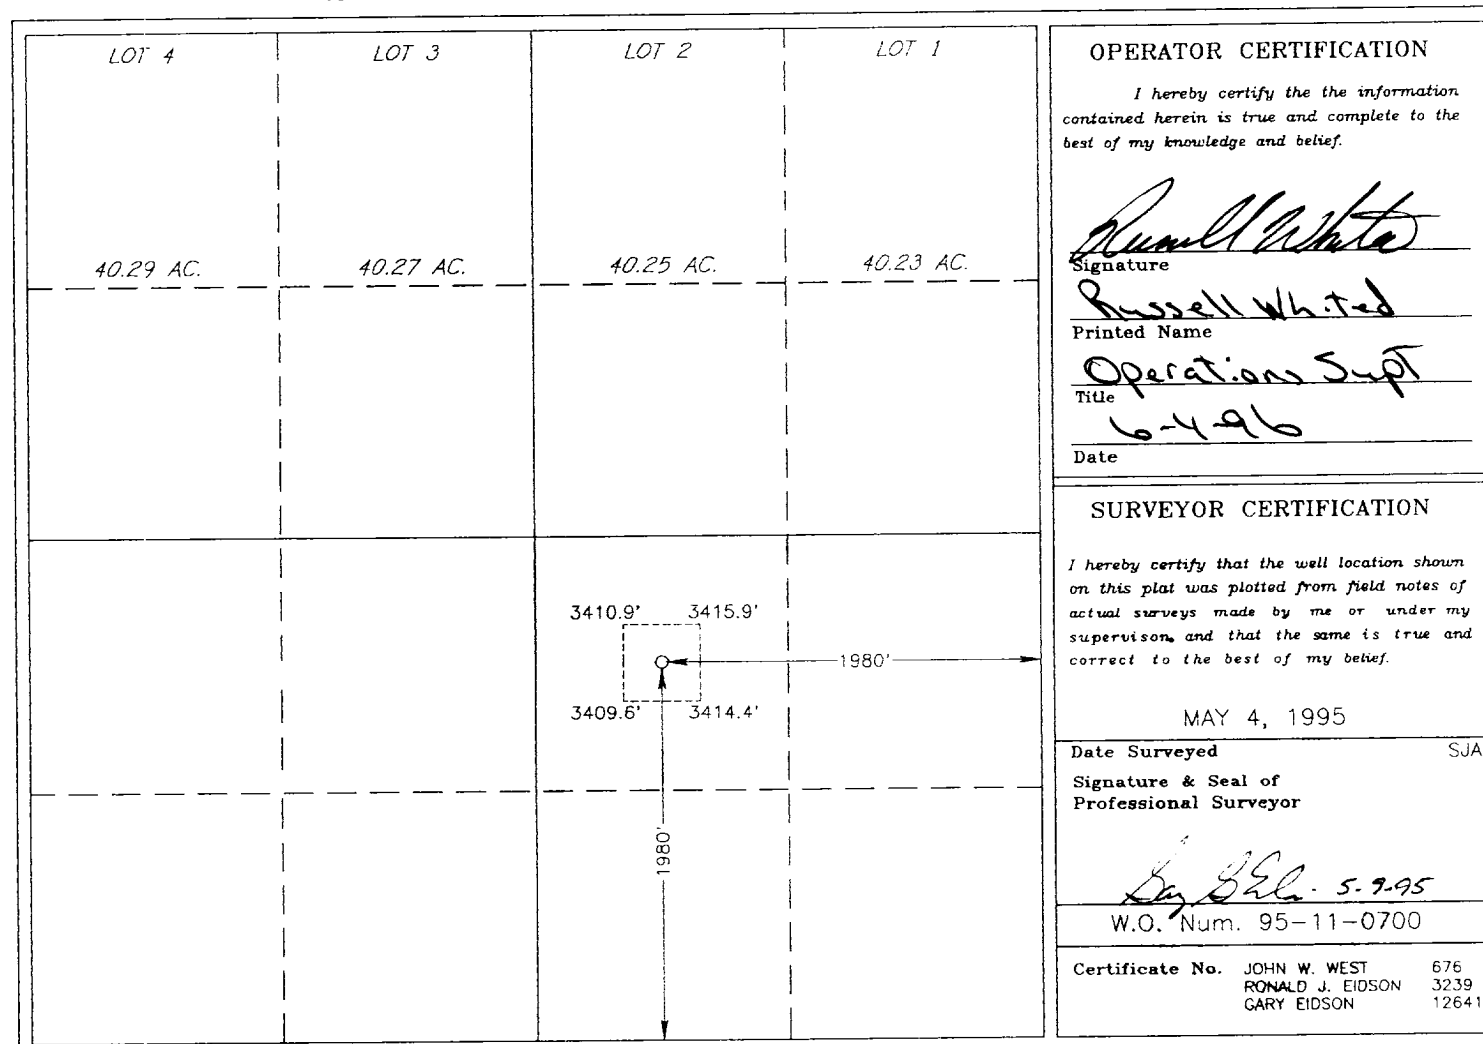 LOT 4 LOT 3 LOT 2 LOT 1
40.29 AC. 40.27 AC. 40.25 AC. 40.23 AC.
3410.9' 3415.9'
1980'
3409.6' 3414.4'
1980'
OPERATOR CERTIFICATION
I hereby certify the the information
contained herein is true and complete to the
best of my knowledge and belief.
Signature
Russell Whited
Printed Name
Operations Supt
Title
6-4-96
Date
SURVEYOR CERTIFICATION
I hereby certify that the well location shown
on this plat was plotted from field notes of
actual surveys made by me or under my
supervison, and that the same is true and
correct to the best of my belief.
MAY 4, 1995
Date Surveyed SJA
Signature & Seal of
Professional Surveyor
5-9-95
W.O. Num. 95-11-0700
Certificate No. JOHN W. WEST 676
RONALD J. EIDSON 3239
GARY EIDSON 12641